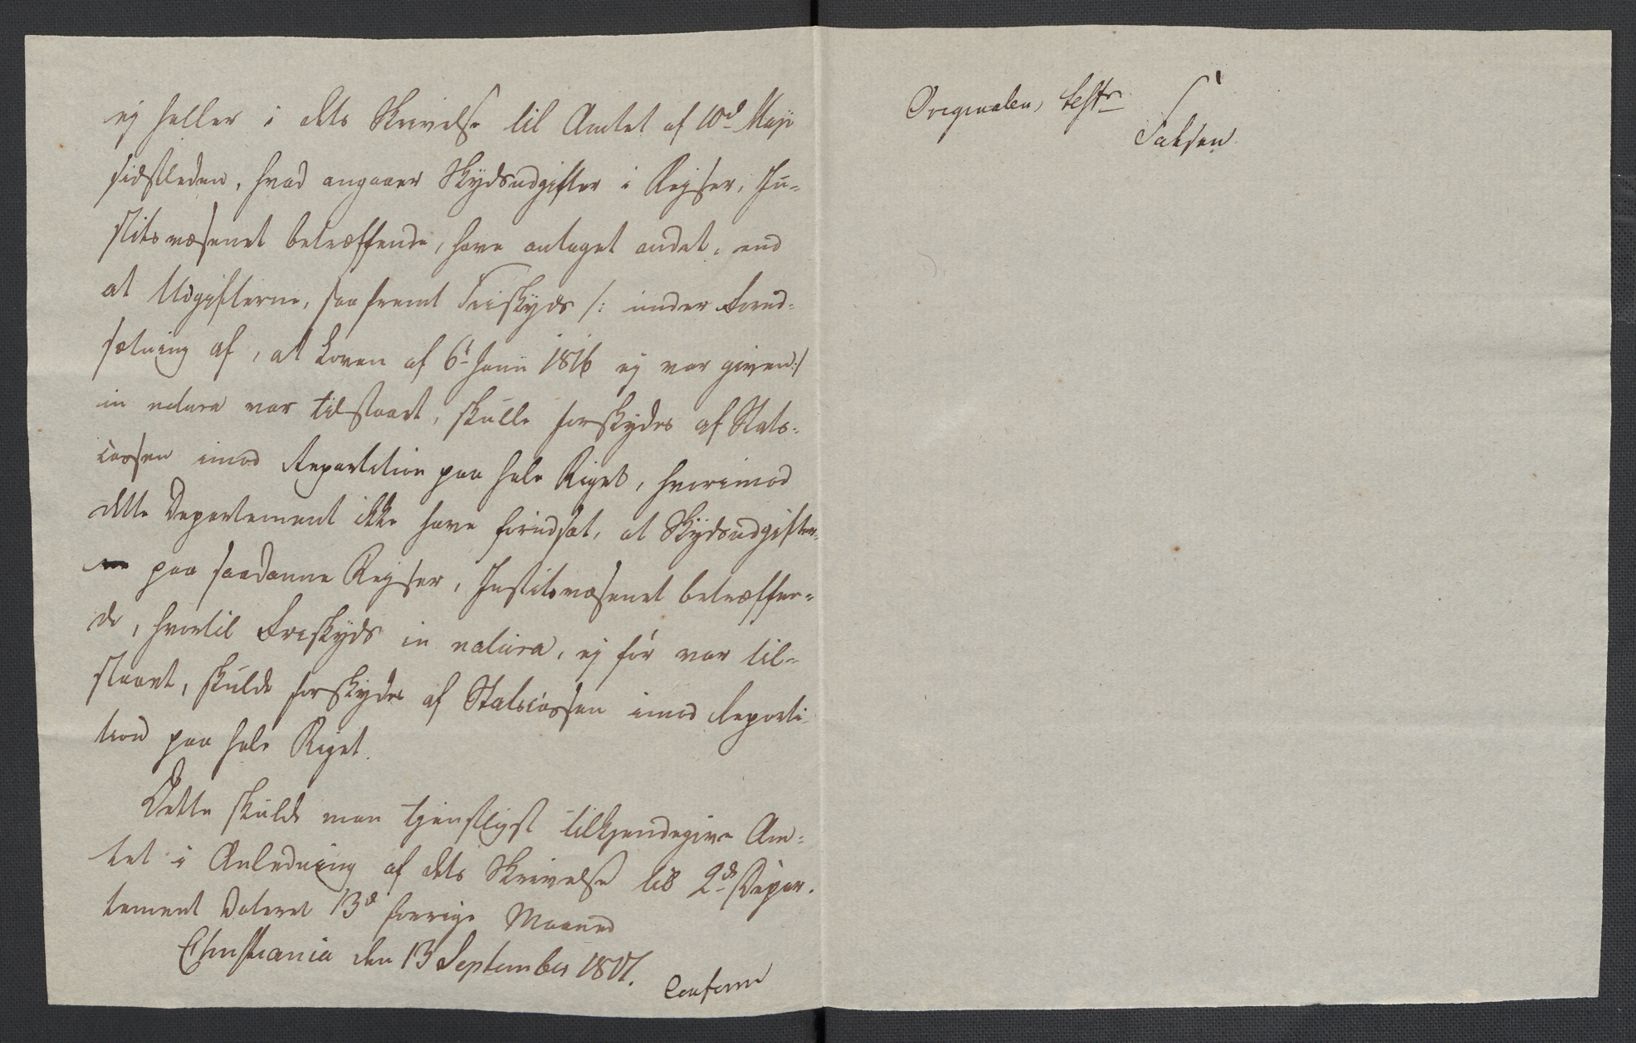 ej heller i dets Skrivelse til Amtet af 10d Maji
sidstleden, hvad angaaer Skydsudgifter i Rejser, Ju-
stitsvæsenet betræffende, have antaget andet, end
at Udgifterne, saafremt Friskyds /: under Forud-
sætning af, at Loven af 6t Juni 1816 ej var given :/
in natura var tilstaaet, skulle forskydes af Stats-
cassen imod Repartition paa hele Riget, hvorimod
dette Departement ikke have forudsat, at Skydsudgifter-
ne paa saadanne Rejser, Justitsvæsenet betræffen-
de, hvortil Friskyds in natura, ej før var til-
staaet, skulde forskydes af Statscassen imod Reparti-
tion paa hele Riget.
Dette skulde man tjenstligst tilkjendegive Am-
tet i Anledning af dets Skrivelse til 2d Depar-
tement dateret 13d forrige Maaned
Christiania den 13 September 1817.
Conform
Originalen, test